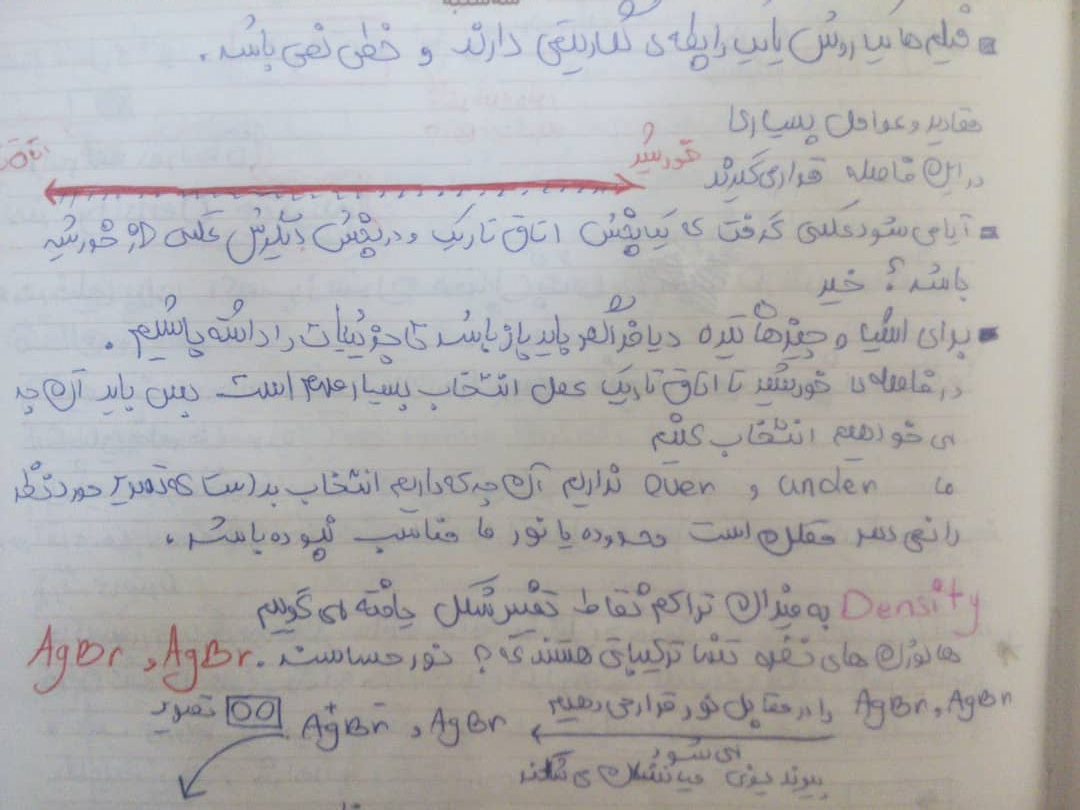 فیلم ها یک روش یابی رابطه ی لگاریتمی دارند و خطی نمی باشد.
مقادیر و عوامل بسیاری
خورشید
در این فاصله قرار می گیرند
آیا می شود عکسی گرفت که یک بخش اتاق تاریک و در بخش دیگرش عکسی از خورشید
باشد؟ خیر
برای اشیا و چیزهای تیره دیافراگم باید باز باشد تا جزئیات را داشته باشیم.
در فاصله تا خورشید تا اتاق تاریک عمل انتخاب بسیار مهم است پس باید آن چه
می خواهیم انتخاب کنیم
ما under و over نداریم آن چه که داریم انتخاب بد است که تصویر مورد نظر
را نمی دهد ممکن است محدوده یا نور ما مناسب نبوده باشد.
Density به میزان تراکم نقاط تغییر شکل یافته می گوییم
هالوژن های نقره تنها ترکیباتی هستند که؟ نور حساست. AgBr, AgBr
AgBr, AgBr را در مقابل نور قرار می دهیم AgBr, Ag⁺Br⁻ تصویر
می شود
پیوند یونی میانشان می شکند